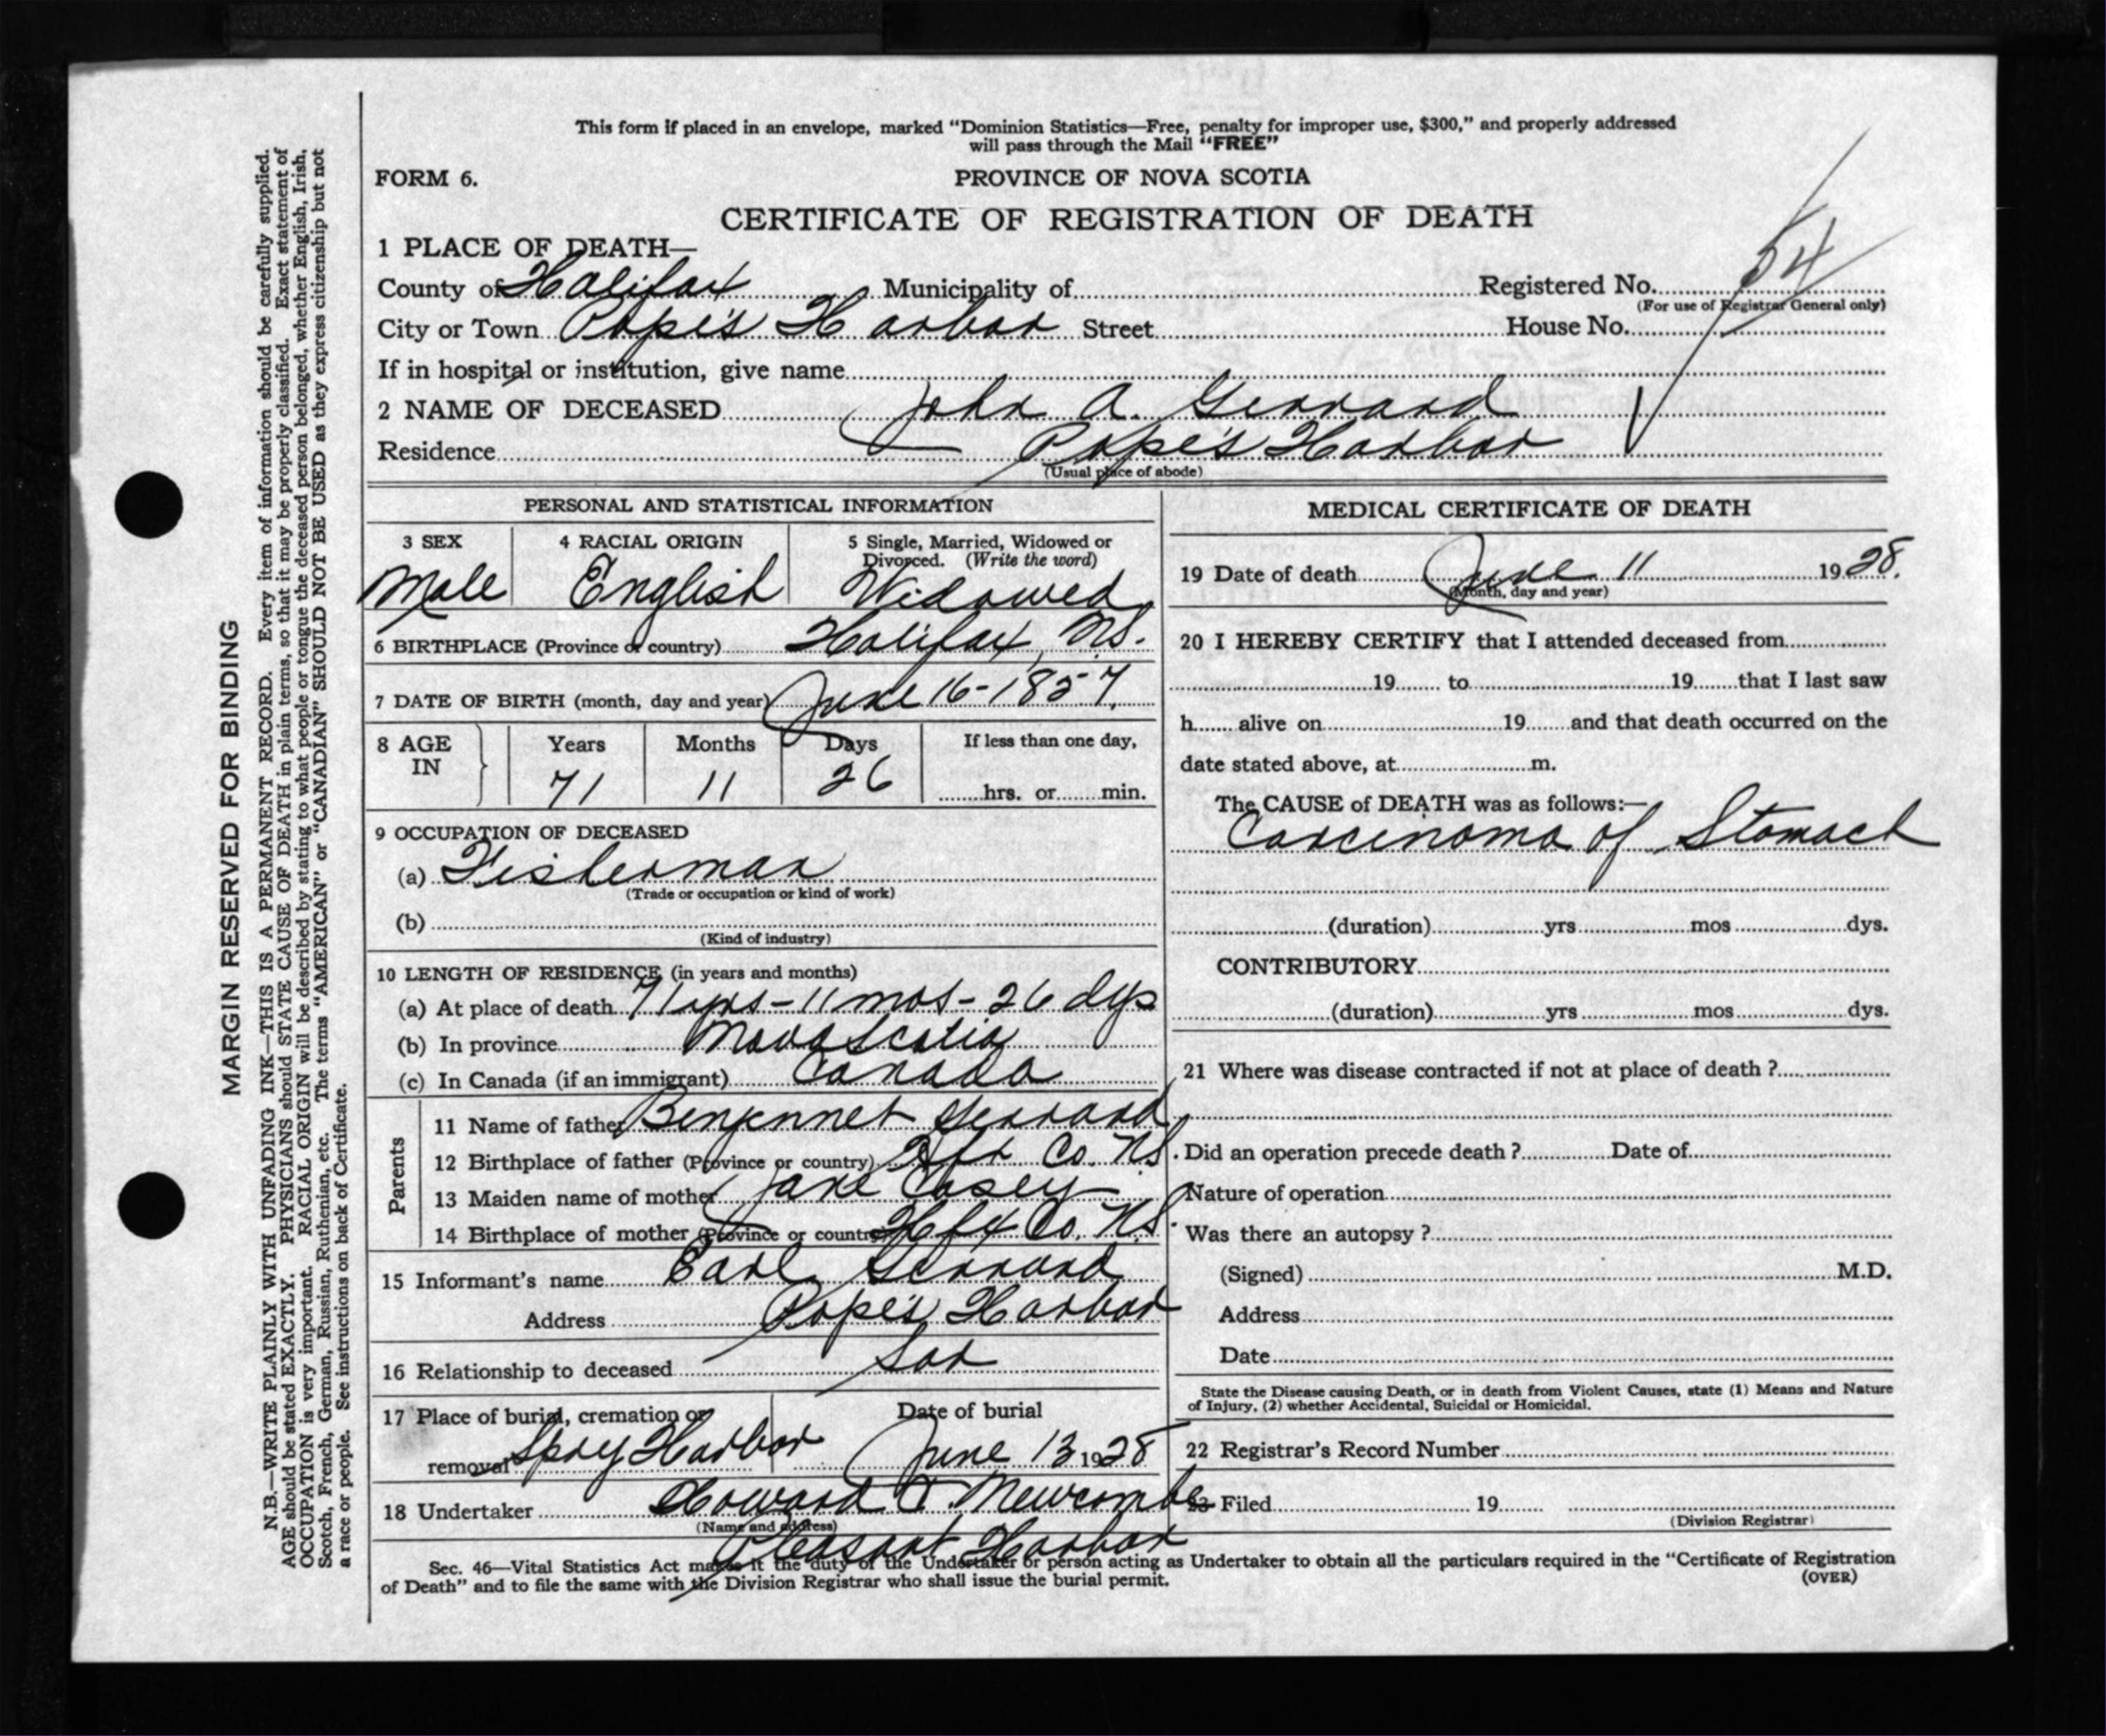 This form if placed in an envelope, marked “Dominion Statistics—Free, penalty for improper use, $300,” and properly addressed
will pass through the Mail “FREE”
FORM 6.
PROVINCE OF NOVA SCOTIA
CERTIFICATE OF REGISTRATION OF DEATH
1 PLACE OF DEATH—
County of Halifax Municipality of Registered No. 54
(For use of Registrar General only)
City or Town Pope's Harbor Street House No.
If in hospital or institution, give name
2 NAME OF DECEASED John A. Gerrard
Residence Pope's Harbor
(Usual place of abode)
PERSONAL AND STATISTICAL INFORMATION
3 SEX 4 RACIAL ORIGIN 5 Single, Married, Widowed or
Divorced. (Write the word)
Male English Widowed
6 BIRTHPLACE (Province or country) Halifax, N.S.
7 DATE OF BIRTH (month, day and year) June 16-1857.
8 AGE IN Years Months Days If less than one day,
71 11 26 hrs. or min.
9 OCCUPATION OF DECEASED
(a) Fisherman
(Trade or occupation or kind of work)
(b)
(Kind of industry)
10 LENGTH OF RESIDENCE (in years and months)
(a) At place of death 71 yrs-11 mos-26 dys
(b) In province Nova Scotia
(c) In Canada (if an immigrant) Canada
Parents
11 Name of father Gerrard
12 Birthplace of father (Province or country) Hfx Co. N.S.
13 Maiden name of mother Jane Casey
14 Birthplace of mother (Province or country) Hfx Co. N.S.
15 Informant's name Earl Gerrard
Address Pope's Harbor
16 Relationship to deceased Son
17 Place of burial, cremation or Date of burial
removal Spry Harbor June 13 1928
18 Undertaker Howard T. Newcombe
(Name and address)
Pleasant Harbor
MEDICAL CERTIFICATE OF DEATH
19 Date of death June 11 1928.
(Month, day and year)
20 I HEREBY CERTIFY that I attended deceased from
19 to 19 that I last saw
h alive on 19 and that death occurred on the
date stated above, at m.
The CAUSE of DEATH was as follows:—
Carcinoma of Stomach
(duration) yrs mos dys.
CONTRIBUTORY
(duration) yrs mos dys.
21 Where was disease contracted if not at place of death ?
Did an operation precede death ? Date of
Nature of operation
Was there an autopsy ?
(Signed) M.D.
Address
Date
State the Disease causing Death, or in death from Violent Causes, state (1) Means and Nature
of Injury, (2) whether Accidental, Suicidal or Homicidal.
22 Registrar's Record Number
23 Filed 19
(Division Registrar)
Sec. 46—Vital Statistics Act makes it the duty of the Undertaker or person acting as Undertaker to obtain all the particulars required in the “Certificate of Registration
of Death” and to file the same with the Division Registrar who shall issue the burial permit.
(OVER)
MARGIN RESERVED FOR BINDING
N.B.—WRITE PLAINLY WITH UNFADING INK—THIS IS A PERMANENT RECORD. Every item of information should be carefully supplied.
AGE should be stated EXACTLY. PHYSICIANS should STATE CAUSE OF DEATH in plain terms, so that it may be properly classified. Exact statement of
OCCUPATION is very important. RACIAL ORIGIN will be described by stating to what people or tongue the deceased person belonged, whether English, Irish,
Scotch, French, German, Russian, Ruthenian, etc. The terms “AMERICAN” or “CANADIAN” SHOULD NOT BE USED as they express citizenship but not
a race or people. See instructions on back of Certificate.